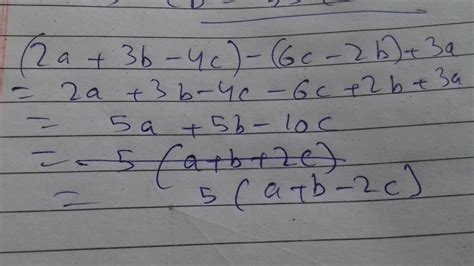 (2a + 3b - 4c) - (6c - 2b) + 3a
= 2a + 3b - 4c - 6c + 2b + 3a
= 5a + 5b - 10c
= - 5 (a+b+2c)
= 5 (a+b-2c)